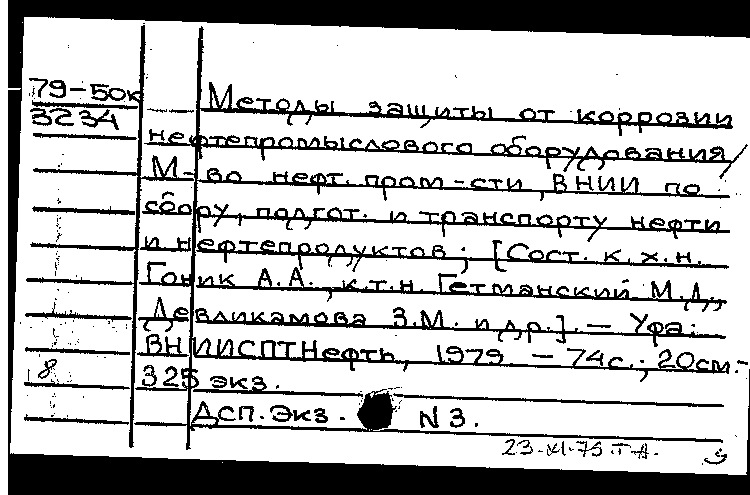 79-50к
3234
Методы защиты от коррозии
нефтепромыслового оборудования/
М-во нефт. пром-сти, ВНИИ по
сбору, подгот. и транспорту нефти
и нефтепродуктов; [Сост. к. х. н.
Гоник А. А., к. т. н. Гетманский М. Д.,
Девликамова З. М. и др.]. — Уфа:
ВНИИСПТНефть, 1979. — 74 с.; 20 см. -
8
325 экз.
Дсп. Экз. N 3.
23-XI-79